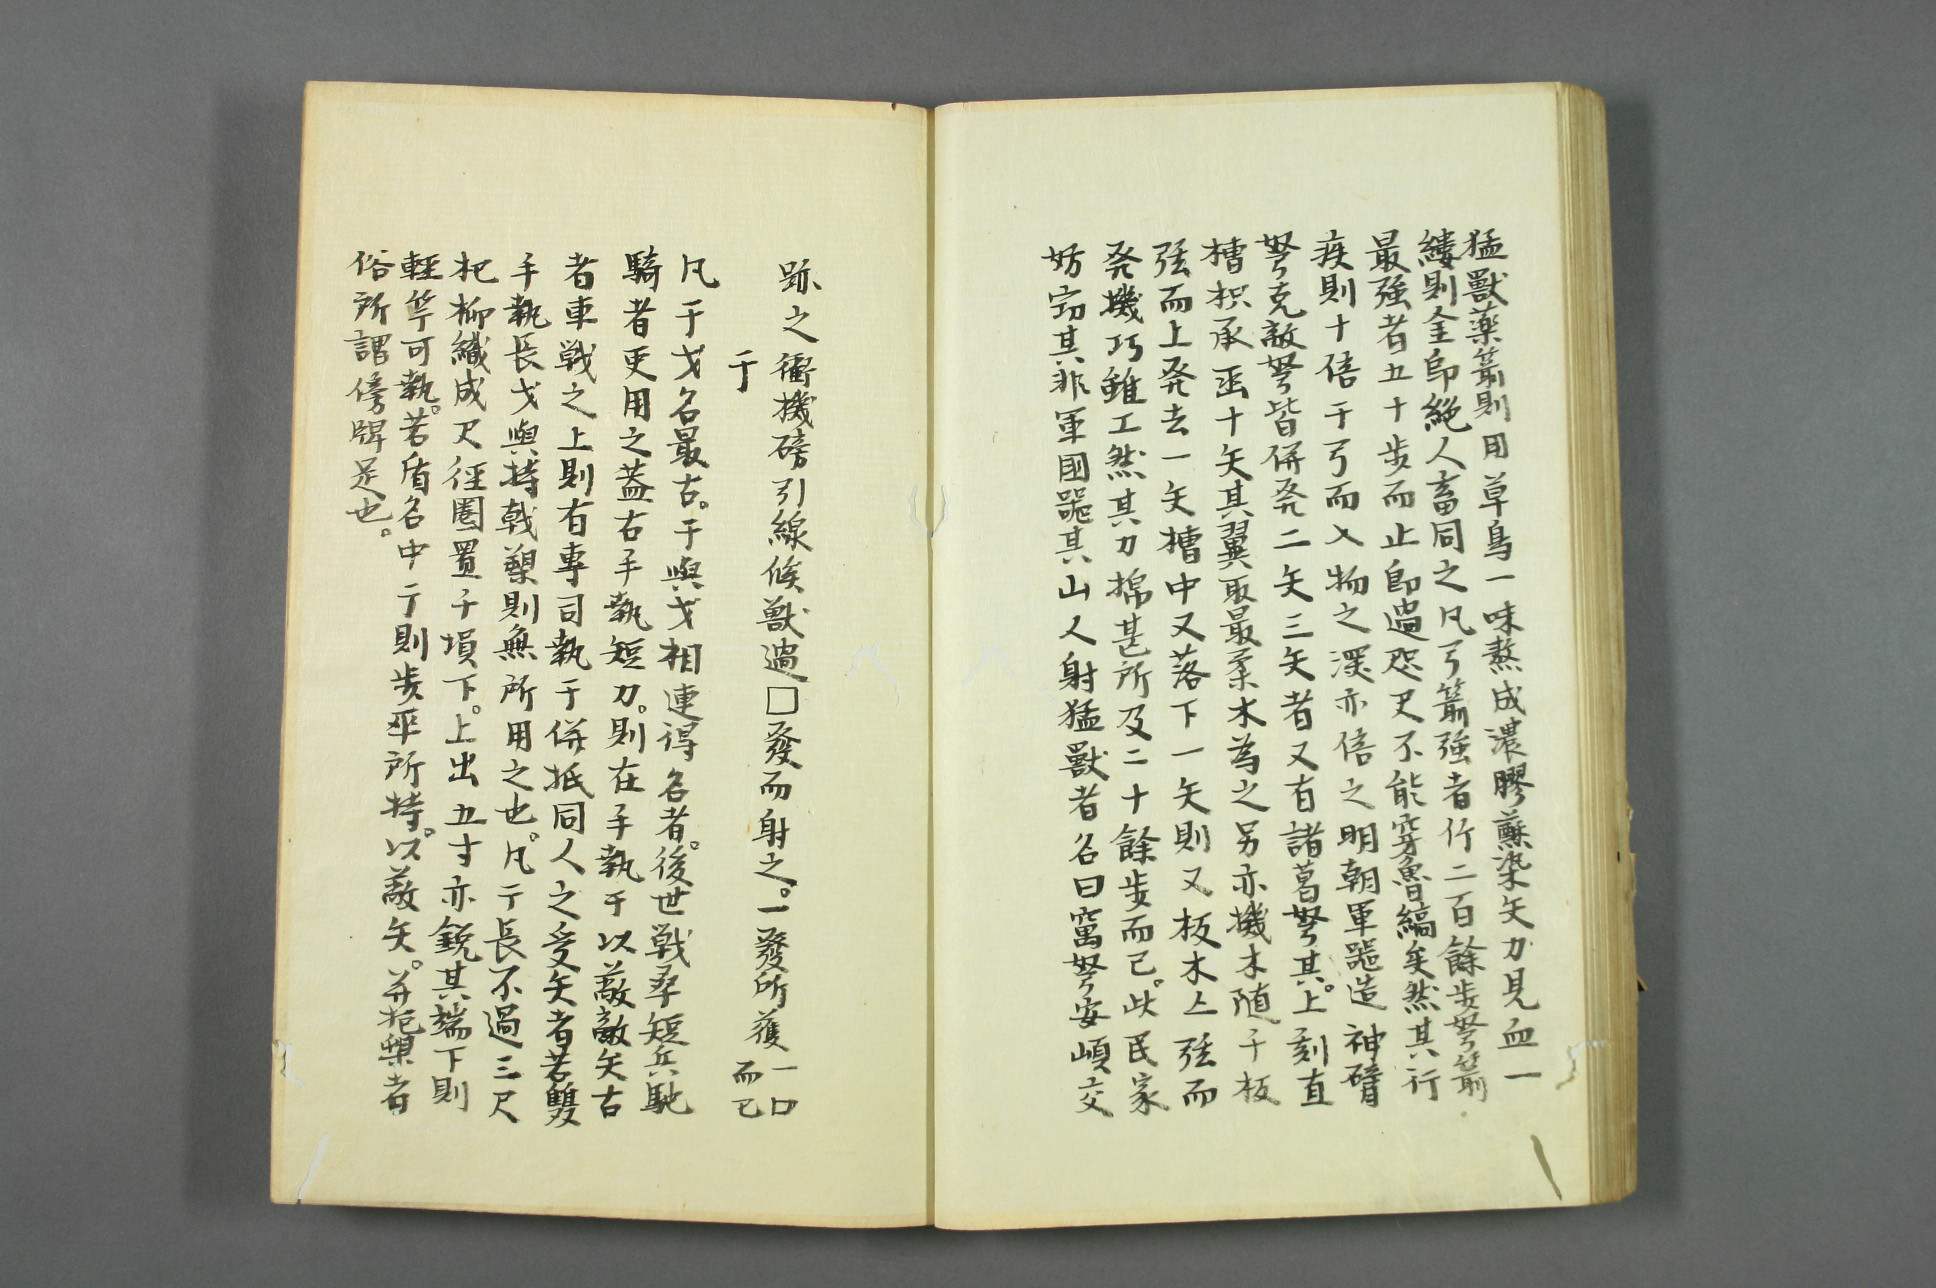 猛獸藥箭則用草烏一味熬成濃膠蘸染矢刀見血一
縷則全即絕人畜同之凡弓箭強者行二百餘步弩箭
最強者五十步而止即過咫尺不能穿魯縞矣然其行
疾則十倍于弓而入物之深亦倍之明朝軍噐造神臂
弩克敵弩皆併発二矢三矢者又有諸葛弩其。上刻直
槽枳承函十矢其翼取最柔木為之另亦機木隨于板
弦而上発去一矢槽中又落下一矢則又板木亠弦而
発機巧雖工然其力棉甚所及二十餘步而已。此民家
妨窃其非軍国噐其山人射猛獸者名曰窩弩安嵿交
跡之衝機磅引線候獸過□發而射之。一發所獲一口
而已
干
凡干戈名最古。干與戈相連得名者。後世戰卒短兵馳
騎者更用之蓋右手執短刀。則在手執干以蔽敵矢古
者車戰之上則有專司執于併抵同人之受矢者若雙
手執長戈與持戟槊則無所用之也。凡干長不過三尺
杞柳織成尺徑圈置于塤下。上出五寸亦銳其端下則
輕竿可執。若盾名中干則步卒所持。以蔽矢。并拒槊者
俗所謂傍牌是也。